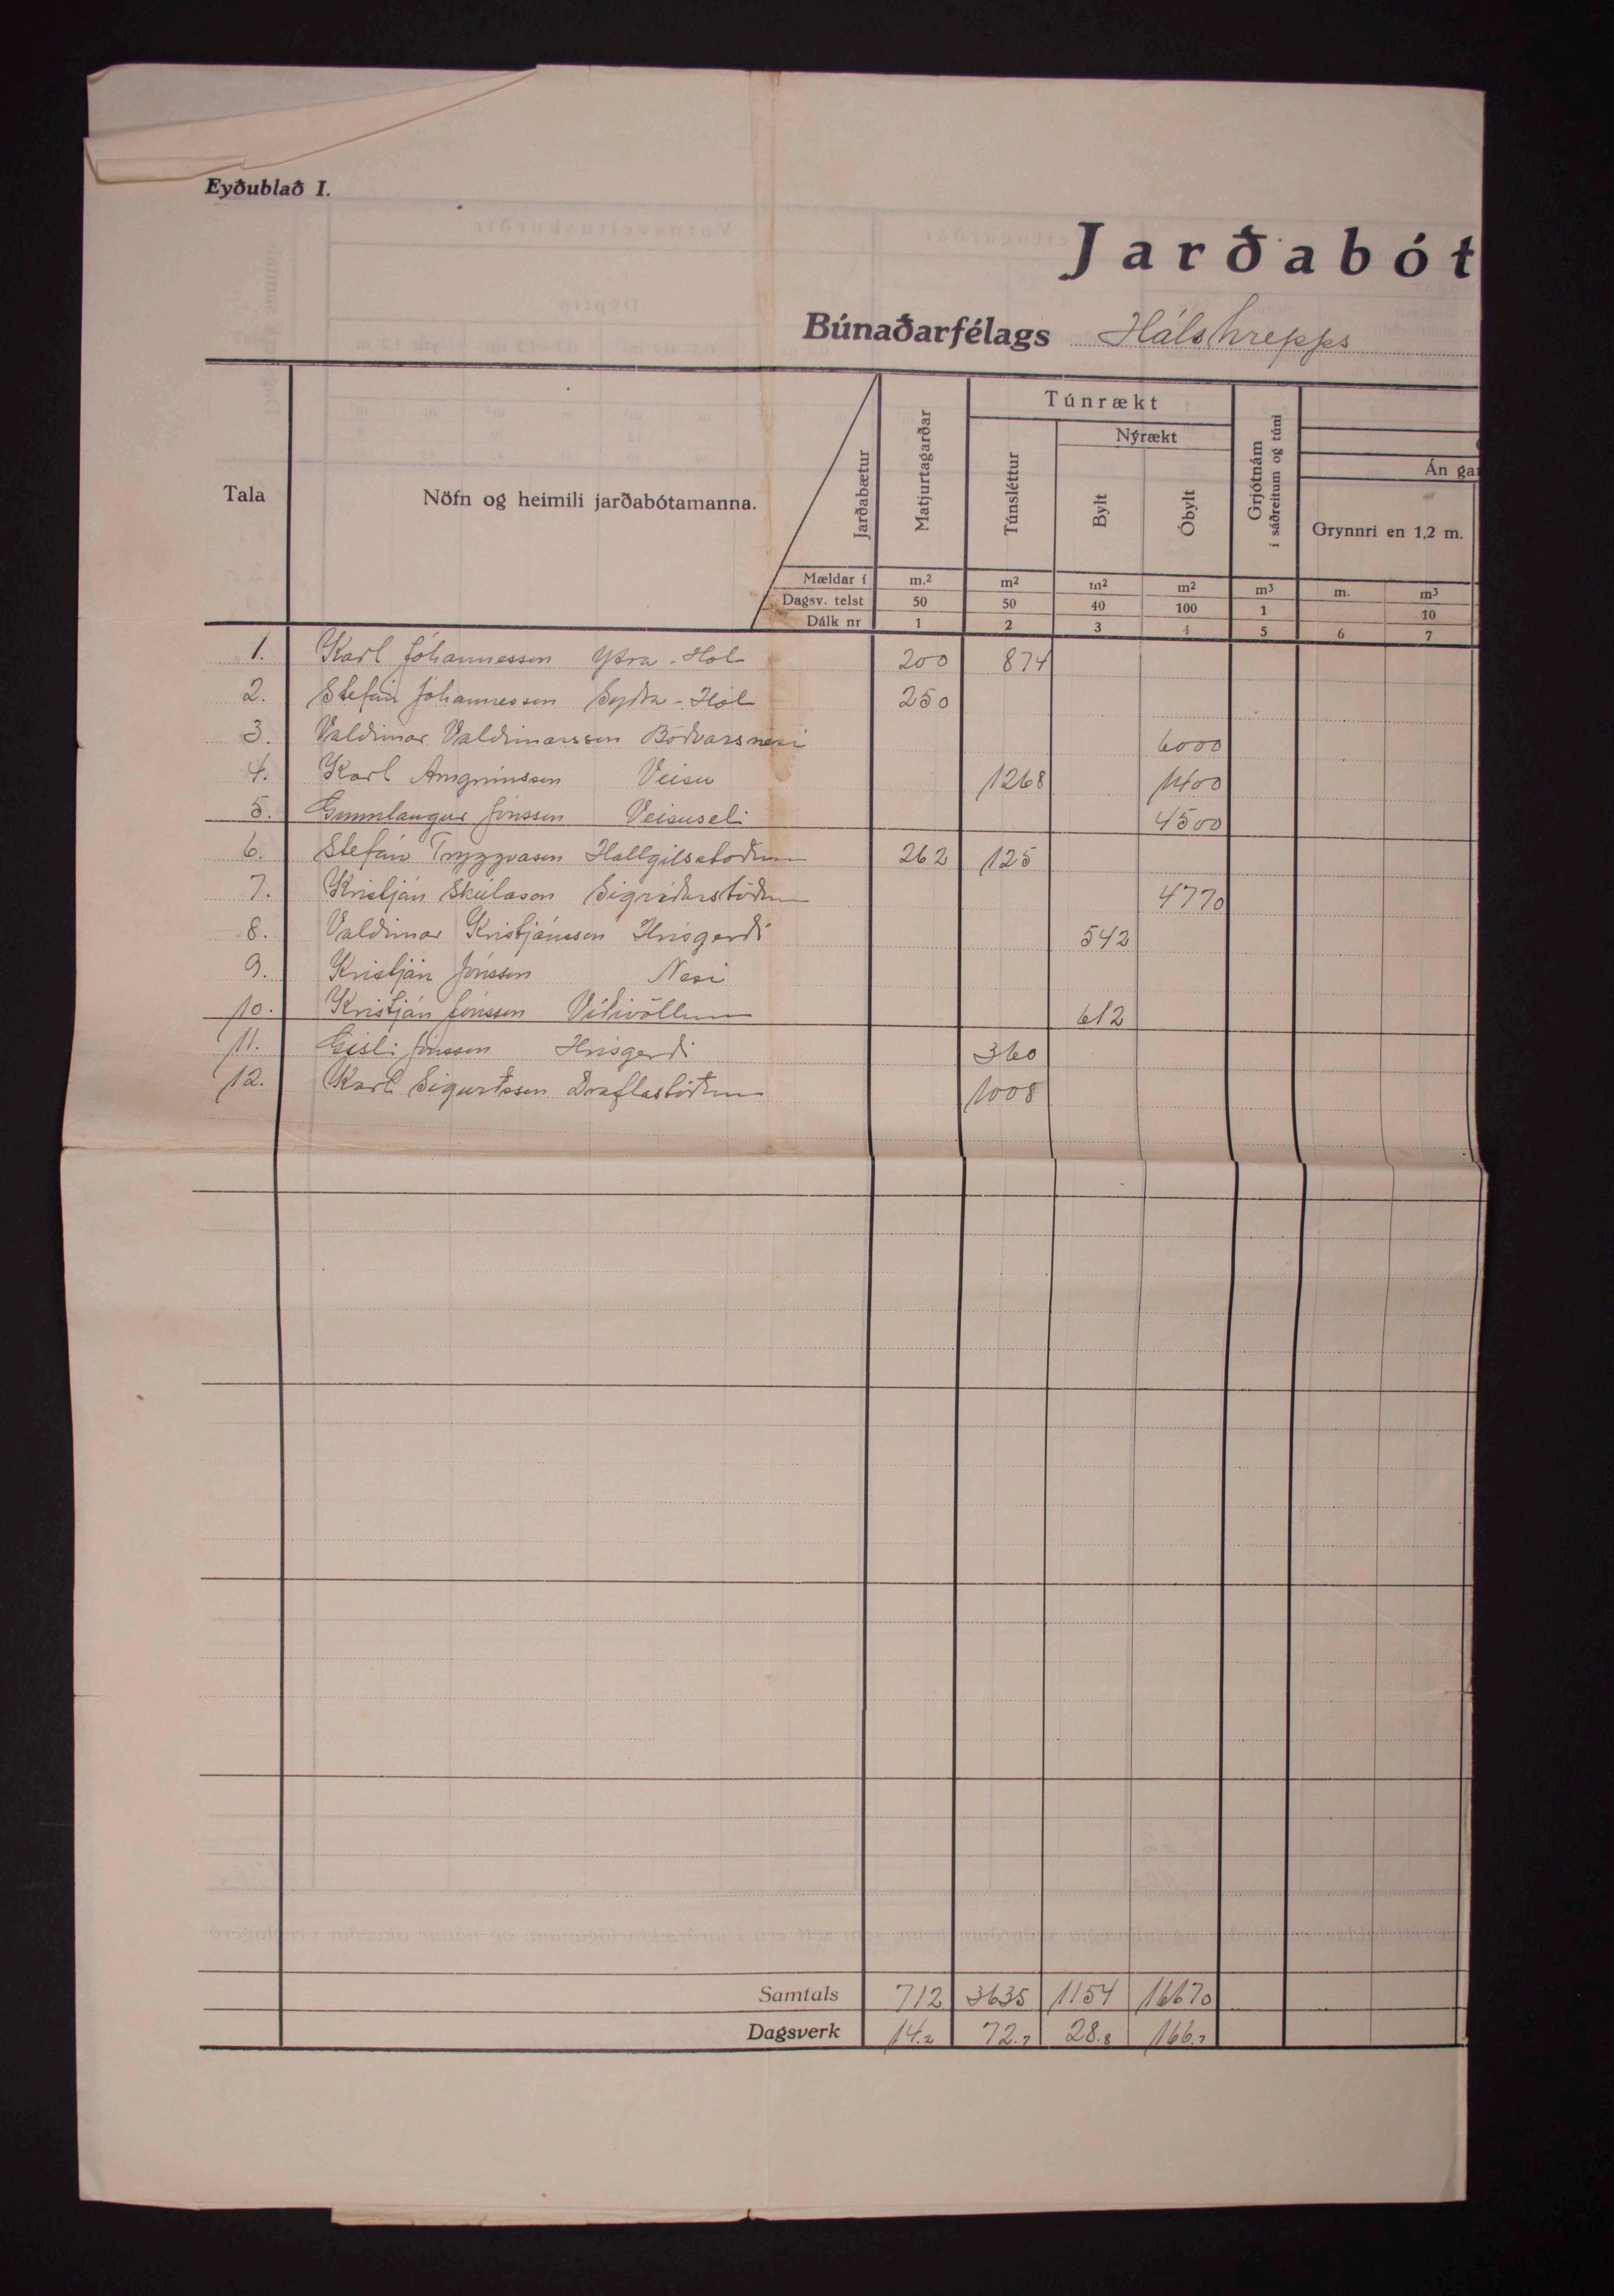 Eyðublað I.
Jarðabót
Búnaðarfélags Hálshrepps
Tala
Nöfn og heimili jarðabótamanna.
Jarðabætur
Matjurtagarðar
Túnrækt
Túnsléttur
Nýrækt
Bylt
Óbylt
Grjótnám í sáðreitum og túni
Án ga
Grynnri en 1,2 m.
Mældar í m.2 m2 m2 m2 m3 m. m3
Dagsv. telst 50 50 40 100 1 10
Dálk nr 1 2 3 4 5 6 7
1. Karl Jóhannesson Ytra-Hól 200 874
2. Stefán Jóhannesson Syðra-Hól 250
3. Valdimar Valdimarsson Böðvarsnesi 6000
4. Karl Arngrímsson Veisu 1268 1400
5. Gunnlaugur Jónsson Veisuseli 4500
6. Stefán Tryggvason Hallgilsstöðum 262 125
7. Kristján Skúlason Sigríðarstöðum 4770
8. Valdimar Kristjánsson Hrísgerði 542
9. Kristján Jónsson Nesi
10. Kristján Jónsson Víðivöllum 612
11. Gísli Jónsson Hrísgerði 360
12. Karl Sigurðsson Draflastöðum 1008
Samtals 712 3635 1154 16670
Dagsverk 14.2 72.7 28.8 166.7